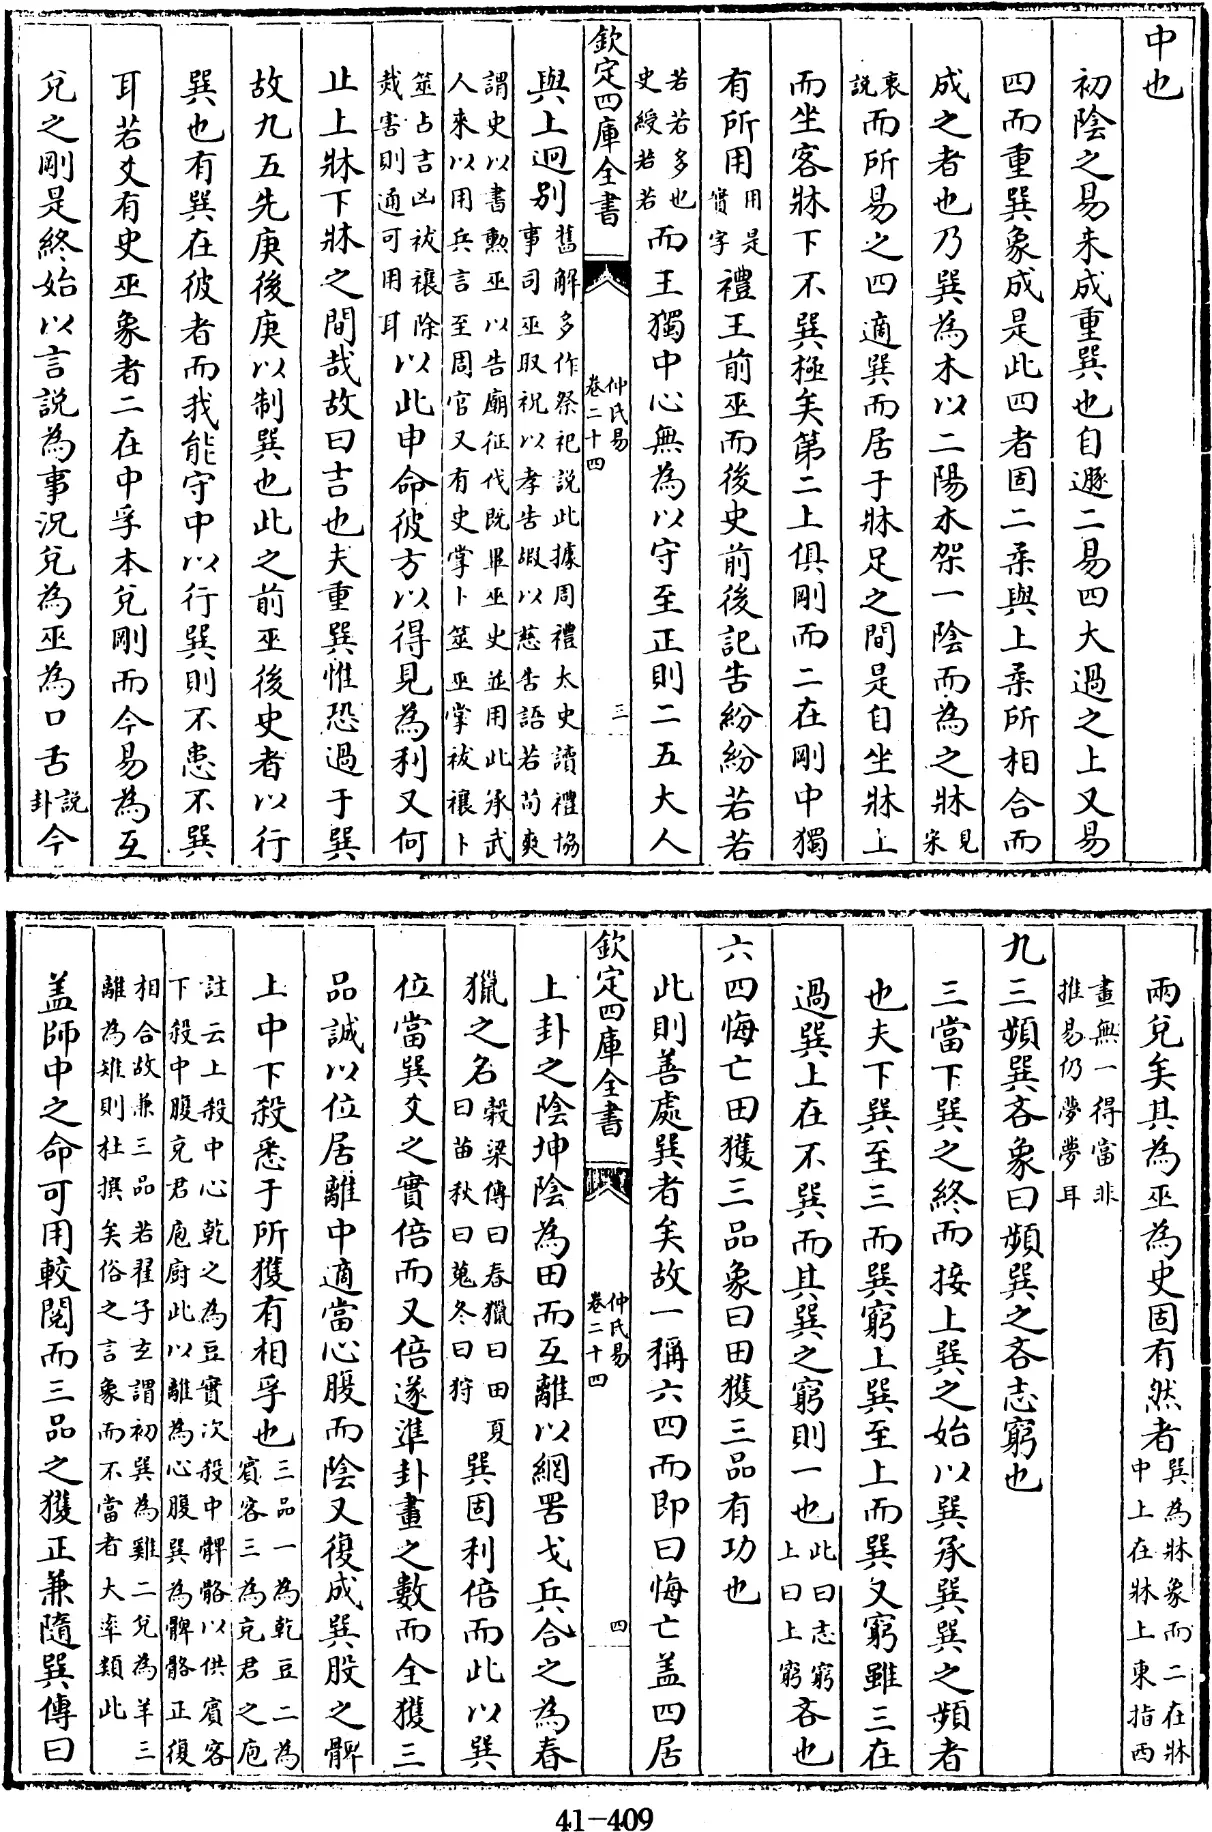 中也
初陰之易未成重巽也自遯二易四大過之上又易
四而重巽象成是此四者固二柔與上柔所相合而
成之者也乃巽為木以二陽木架一陰而為之牀見宋
衷說而所易之四適巽而居于牀足之間是自坐牀上
而坐客牀下不巽極矣第二上俱剛而二在剛中獨
有所用用是實字禮王前巫而後史前後記告紛紛若若
若若多也史綬若若而王獨中心無為以守至正則二五大人
欽定四庫全書
仲氏易
卷二十四
三
與上迥別舊解多作祭祀說此據周禮太史讀禮協事司巫取祝以孝告嘏以慈告語若荀爽
謂史以書勲巫以告廟征伐既畢巫史並用此承武人來以用兵言至周官又有史掌卜筮巫掌祓禳卜
筮占吉凶祓禳除烖害則通可用耳以此申命彼方以得見為利又何
止上牀下牀之間哉故曰吉也夫重巽惟恐過于巽
故九五先庚後庚以制巽也此之前巫後史者以行
巽也有巽在彼者而我能守中以行巽則不患不巽
耳若爻有史巫象者二在中孚本兌剛而今易為互
兌之剛是終始以言說為事況兌為巫為口舌說卦今
兩兌矣其為巫為史固有然者巽為牀象而二在牀中上在牀上東指西
畫無一得當非推易仍夢夢耳
九三頻巽吝象曰頻巽之吝志窮也
三當下巽之終而接上巽之始以巽承巽巽之頻者
也夫下巽至三而巽窮上巽至上而巽又窮雖三在
過巽上在不巽而其巽之窮則一也此曰志窮上曰上窮吝也
六四悔亡田獲三品象曰田獲三品有功也
此則善處巽者矣故一稱六四而即曰悔亡盖四居
欽定四庫全書
仲氏易
卷二十四
四
上卦之陰坤陰為田而互離以網罟戈兵合之為春
獵之名榖梁傳曰春獵曰田夏曰苗秋曰蒐冬曰狩巽固利倍而此以巽
位當巽爻之實倍而又倍遂準卦畫之數而全獲三
品誠以位居離中適當心腹而陰又復成巽股之髀
上中下殺悉于所獲有相孚也三品一為乾豆二為賓客三為充君之庖
註云上殺中心乾之為豆實次殺中髀髂以供賓客下殺中腹充君庖廚此以離為心腹巽為髀髂正復
相合故兼三品若翟子玄謂初巽為雞二兌為羊三離為雉則杜撰矣俗之言象而不當者大率類此
盖師中之命可用較閱而三品之獲正兼隨巽傳曰
41-409